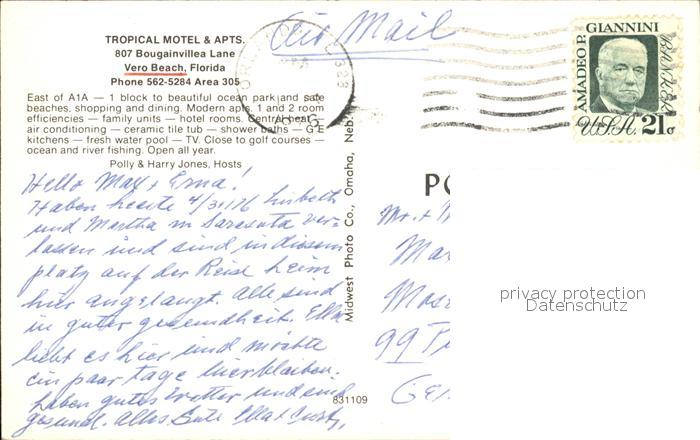 TROPICAL MOTEL & APTS.
807 Bougainvillea Lane
Vero Beach, Florida
Phone 562-5284 Area 305
East of A1A — 1 block to beautiful ocean park and safe
beaches, shopping and dining. Modern apts. 1 and 2 room
efficiencies — family units — hotel rooms. Central heat
air conditioning — ceramic tile tub — shower baths — G-E
kitchens — fresh water pool — TV. Close to golf courses —
ocean and river fishing. Open all year.
Polly & Harry Jones, Hosts
Hello Max + Erna!
Haben heute 4/3/76 Lisbeth
und Martha in Sarasota ver-
lassen und sind in diesem
platz auf der Reise heim
hier angelangt. Alle sind
in guter gesundheit. Ella
liebt es hier und möchte
ein paar tage hierbleiben.
haben gutes Wetter und sind
gesund. Alles Gute Ella +
Midwest Photo Co., Omaha, Neb.
831109
Air Mail
AMADEO P. GIANNINI
BANKER
USA 21c
PO
Mr. +
Mos
99
Ger
privacy protection
Datenschutz